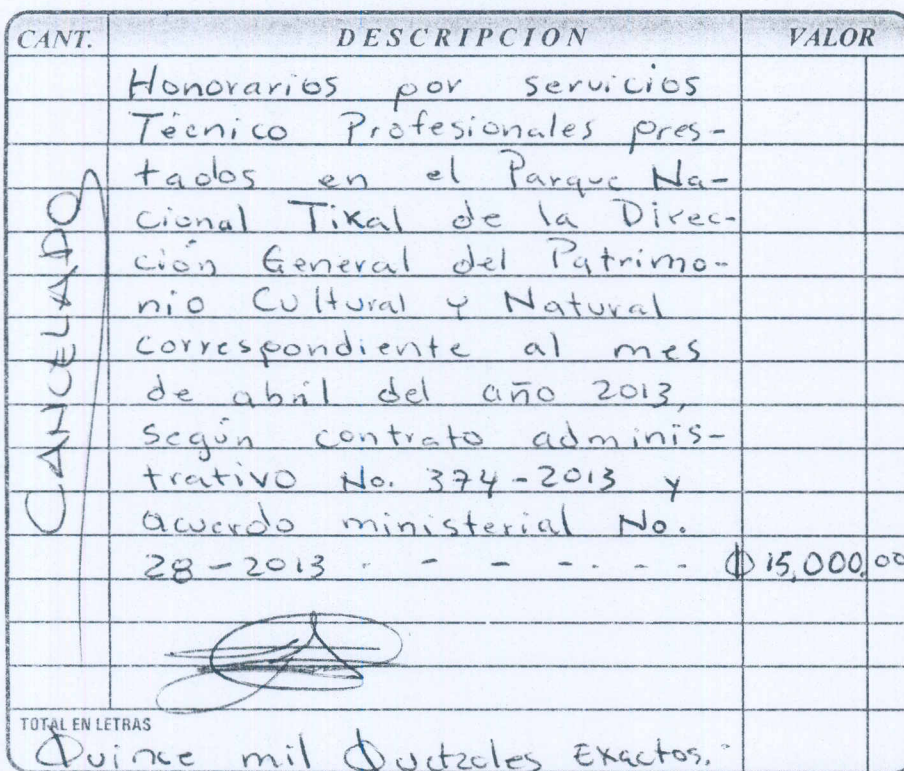 CANT. DESCRIPCION VALOR
Honorarios por servicios
Técnico Profesionales pres-
tados en el Parque Na-
cional Tikal de la Direc-
ción General del Patrimo-
nio Cultural y Natural
correspondiente al mes
de abril del año 2013,
según contrato adminis-
trativo No. 374-2013 y
acuerdo ministerial No.
28-2013 - - - - - - Q 15,000.00
CANCELADO
TOTAL EN LETRAS
Quince mil Quetzales Exactos.-